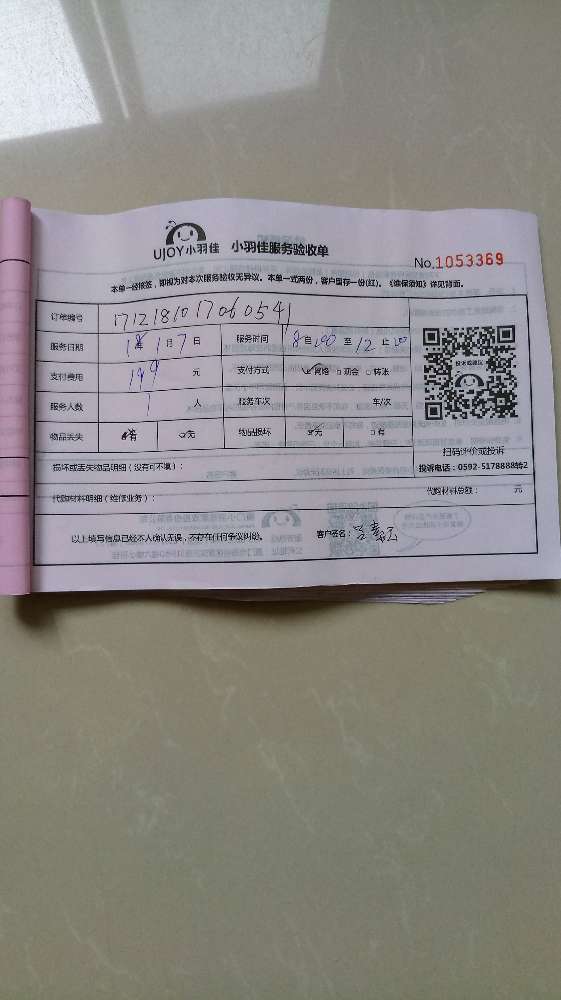 UJOY小羽佳 小羽佳服务验收单
No.1053369
本单一经接签，即视为对本次服务验收无异议。本单一式两份，客户留存一份(红)。《维保须知》详见背面。
订单编号 1712181017060541
服务日期 18年1月7日 服务时间 8点00至12点00
支付费用 199元 支付方式 ☑网络 □现金 □转账
服务人数 1人 服务车次 车/次
物品丢失 有 无 物品损坏 无 有
投诉或建议
扫码评价或投诉
投诉电话：0592-5178888转2
损坏或丢失物品明细（没有可不填）：
代购材料明细（维修业务）： 代购材料总额： 元
以上填写信息已经本人确认无误，不存在任何争议纠纷。 客户签名：